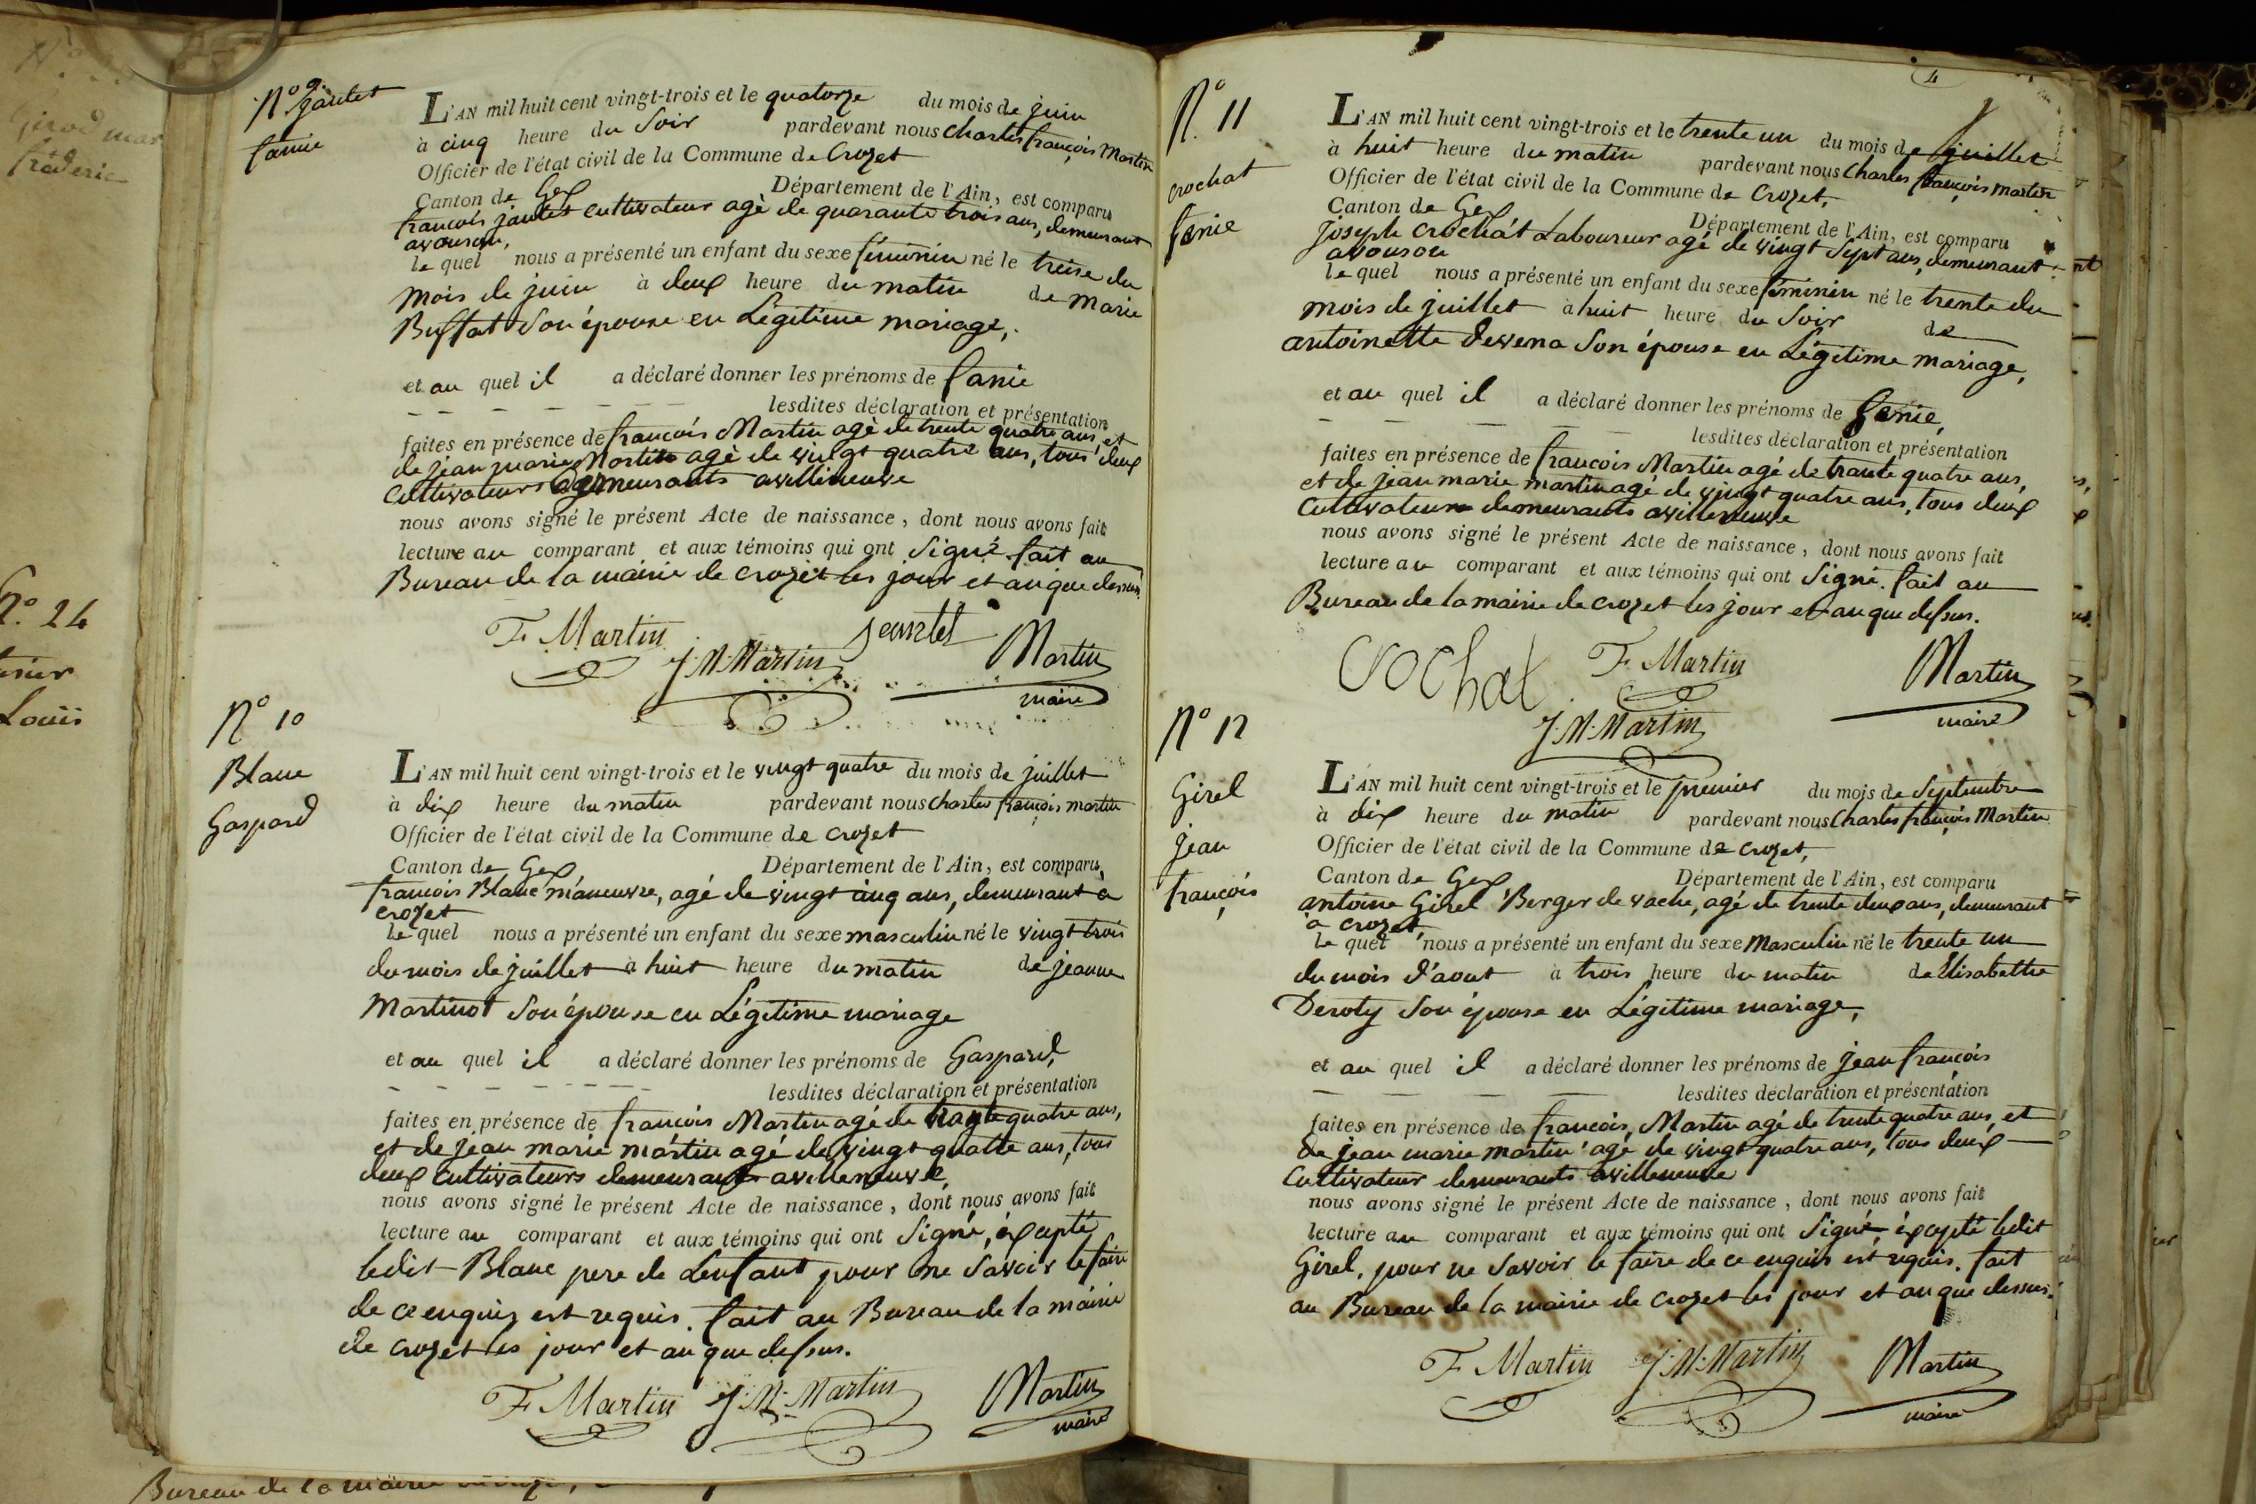 N.º 9.
jantet
fanie
L'AN mil huit cent vingt-trois et le quatorze du mois de juin
à cinq heure du Soir pardevant nous Charles françois Martin
Officier de l'état civil de la Commune de Crozet
Canton de Gex Département de l'Ain, est comparu
francois jantet cultivateur agè de quarante trois ans, demeurant
avouson,
le quel nous a présenté un enfant du sexe féminin né le treise du
mois de juin à deux heure du matin de Marie
Buffat Son épouse en Légitime mariage,
et au quel il a déclaré donner les prénoms de fanie
lesdites déclaration et présentation
faites en présence de francois Martin agè de trente quatre ans, et
de jean marie Martin agè de vingt quatre ans, tous deux
cultivateurs demeurants avilleneuve
nous avons signé le présent Acte de naissance, dont nous avons fait
lecture au comparant et aux témoins qui ont Signé. fait au
Bureau de la mairie de crozet les jour et an que dessus.
F. Martin J. M. Martin jeantet Martin
maire
N.º 10
Blanc
Gaspard
L'AN mil huit cent vingt-trois et le vingt quatre du mois de juillet
à dix heure du matin pardevant nous charles françois martin
Officier de l'état civil de la Commune de crozet
Canton de Gex Département de l'Ain, est comparu,
francois Blanc manœuvre, agé de vingt cinq ans, demeurant a
crozet
le quel nous a présenté un enfant du sexe masculin né le vingt trois
du mois de juillet à huit heure du matin de jeanne
Martinot Son épouse en Légitime mariage
et au quel il a déclaré donner les prénoms de Gaspard,
lesdites déclaration et présentation
faites en présence de francois Martin agé de trante quatre ans,
et de jean marie martin agé de vingt quatre ans, tous
deux cultivateurs demeurant avilleneuve,
nous avons signé le présent Acte de naissance, dont nous avons fait
lecture au comparant et aux témoins qui ont Signé, éxcepté
ledit Blanc pere de Lenfant pour ne Savoir le faire
de ce enquis est requis. fait au Bureau de la mairie
de crozet les jour et an que dessus.
F. Martin J. M. Martin Martin
maire
4
N.º 11
crochat
fanie
L'AN mil huit cent vingt-trois et le trente un du mois de juillet
à huit heure du matin pardevant nous Charles françois martin
Officier de l'état civil de la Commune de Crozet,
Canton de Gex Département de l'Ain, est comparu
joseph crochat Laboureur agé de vingt Sept ans, demeurant
avouson
le quel nous a présenté un enfant du sexe féminin né le trente du
mois de juillet à huit heure du Soir de
antoinette Devena Son épouse en Légitime mariage,
et au quel il a déclaré donner les prénoms de fanie,
lesdites déclaration et présentation
faites en présence de francois Martin agé de trante quatre ans,
et de jean marie martin agé de vingt quatre ans, tous deux
cultivateurs demeurants avilleneuve
nous avons signé le présent Acte de naissance, dont nous avons fait
lecture au comparant et aux témoins qui ont Signé. fait au
Bureau de la mairie de crozet les jour et an que dessus.
crochat F. Martin Martin
J. M. Martin maire
N.º 12
Girel
jean
françois
L'AN mil huit cent vingt-trois et le premier du mois de Septembre
à dix heure du matin pardevant nous Charles françois Martin
Officier de l'état civil de la Commune de crozet,
Canton de Gex Département de l'Ain, est comparu
antoine Girel Berger de vache, agé de trente deux ans, demeurant
à crozet,
le quel nous a présenté un enfant du sexe Masculin né le trente un
du mois d'aout à trois heure du matin de Élisabethe
Deroty Son épouse en Légitime mariage,
et au quel il a déclaré donner les prénoms de jean françois
lesdites déclaration et présentation
faites en présence de francois, Martin agé de trente quatre ans, et
de jean marie martin agé de vingt quatre ans, tous deux
Cultivateur demeurants avilleneuve
nous avons signé le présent Acte de naissance, dont nous avons fait
lecture au comparant et aux témoins qui ont Signé, éxcepté ledit
Girel, pour ne Savoir le faire de ce enquis est requis. fait
au Bureau de la mairie de crozet les jour et an que dessus.
F. Martin J. M. Martin Martin
maire
Girod
frederic
N.º 24
Louis
Bureau de la mairie